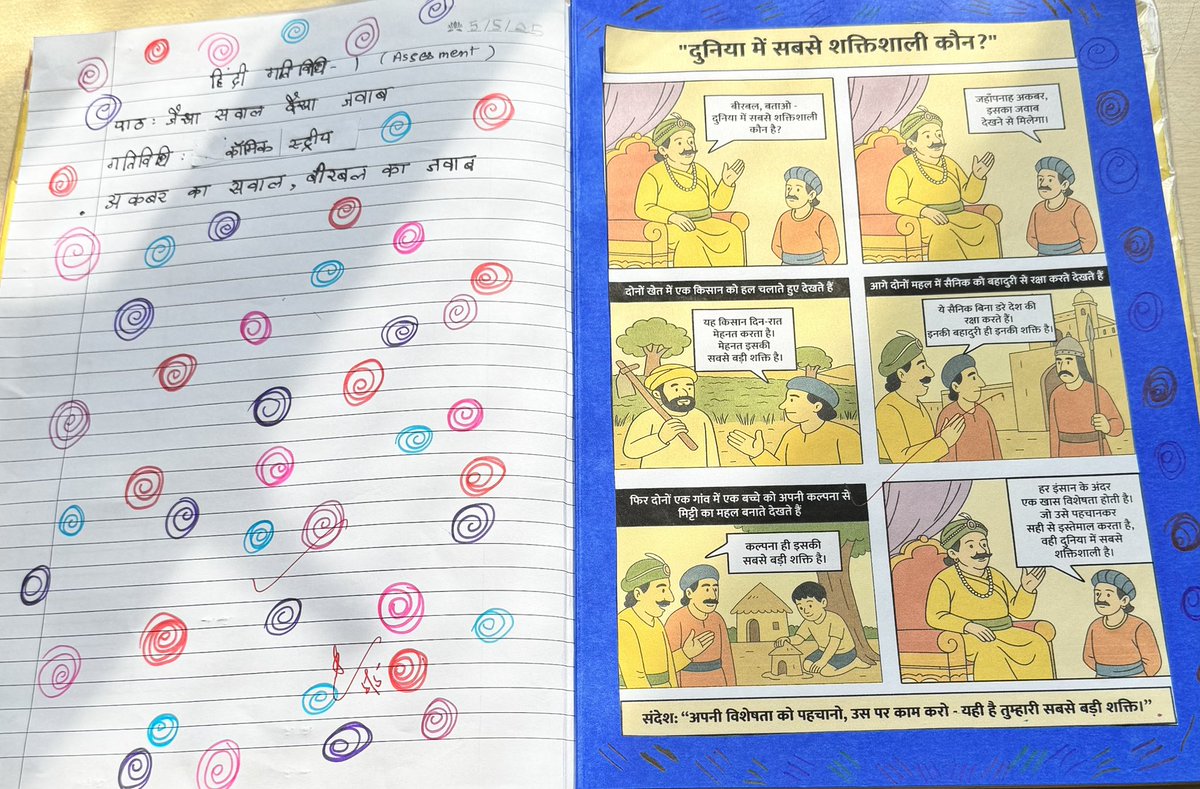 5/5/25
हिंदी गतिविधि - 1 (Assessment)
पाठ: जैसा सवाल वैसा जवाब
गतिविधी: कॉमिक स्ट्रीप
. अकबर का सवाल, बीरबल का जवाब
"दुनिया में सबसे शक्तिशाली कौन?"
बीरबल, बताओ -
दुनिया में सबसे शक्तिशाली
कौन है?
जहाँपनाह अकबर,
इसका जवाब
देखने से मिलेगा।
दोनों खेत में एक किसान को हल चलाते हुए देखते हैं
यह किसान दिन-रात
मेहनत करता है।
मेहनत इसकी
सबसे बड़ी शक्ति है।
आगे दोनों महल में सैनिक को बहादुरी से रक्षा करते देखते हैं
ये सैनिक बिना डरे देश की
रक्षा करते हैं।
इनकी बहादुरी ही इनकी शक्ति है।
फिर दोनों एक गांव में एक बच्चे को अपनी कल्पना से
मिट्टी का महल बनाते देखते हैं
कल्पना ही इसकी
सबसे बड़ी शक्ति है।
हर इंसान के अंदर
एक खास विशेषता होती है।
जो उसे पहचानकर
सही से इस्तेमाल करता है,
वही दुनिया में सबसे
शक्तिशाली है।
संदेश: “अपनी विशेषता को पहचानो, उस पर काम करो - यही है तुम्हारी सबसे बड़ी शक्ति।”